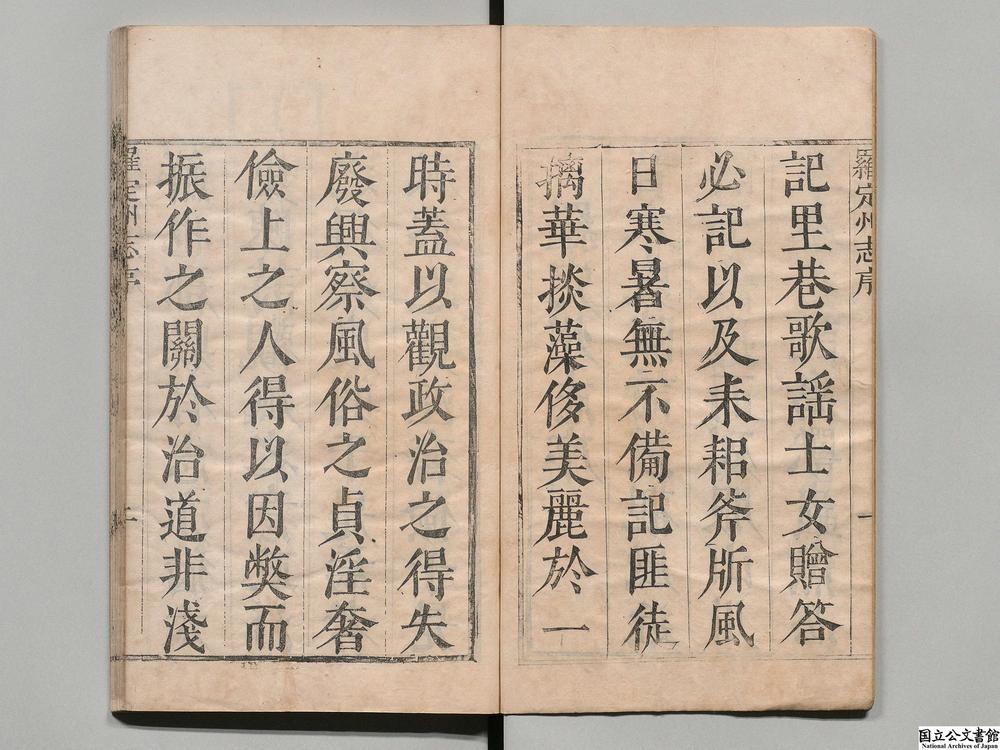 羅定州志序
一
記里巷歌謡士女贈答
必記以及耒耜斧斨風
日寒暑無不備記匪徒
摛華掞藻侈美麗於一
時蓋以觀政治之得失
廢興察風俗之貞淫奢
儉上之人得以因獘而
振作之關於治道非淺
羅定州志序
國立公文書館
National Archives of Japan